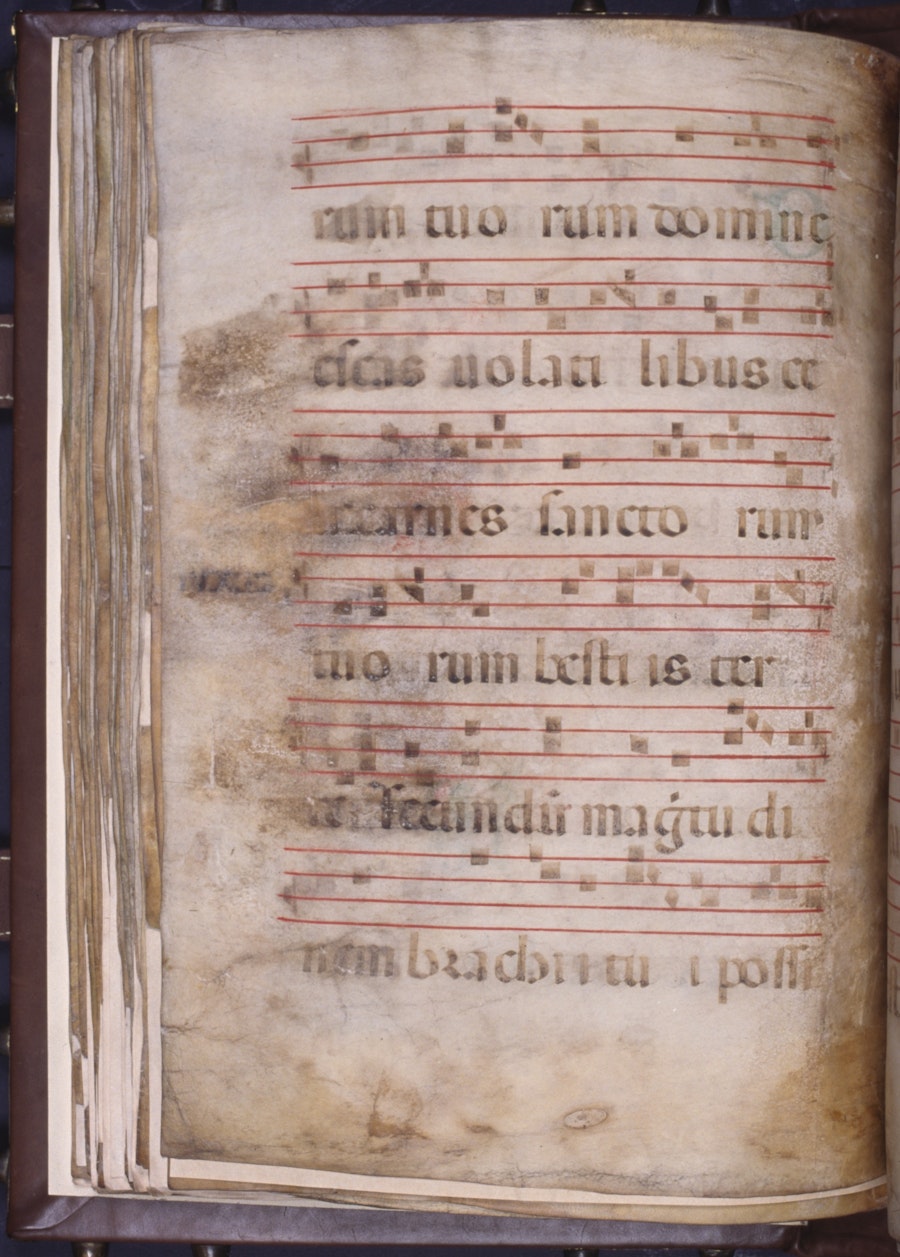 rum tuo rum domine
escas uolati libus ce
carnes sancto rum
tuo rum besti is ter
re secundũ magĩtu di
nem brachii tu i possi